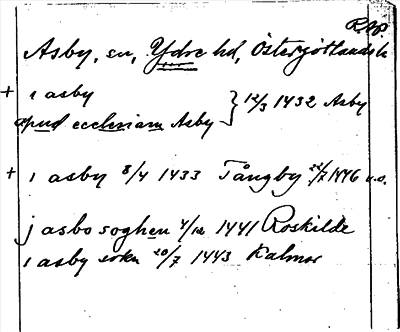 RAP.
Asby, sn, Ydre hd, Östergötlands l.
+ i asby
apud ecclesiam Asby } 12/3 1432 Asby
+ i asby 8/4 1433 Tångby 24/7 1446 u.o.
j asbo soghen 4/12 1441 Roskilde
i asby sokn 20/7 1443 Kalmar